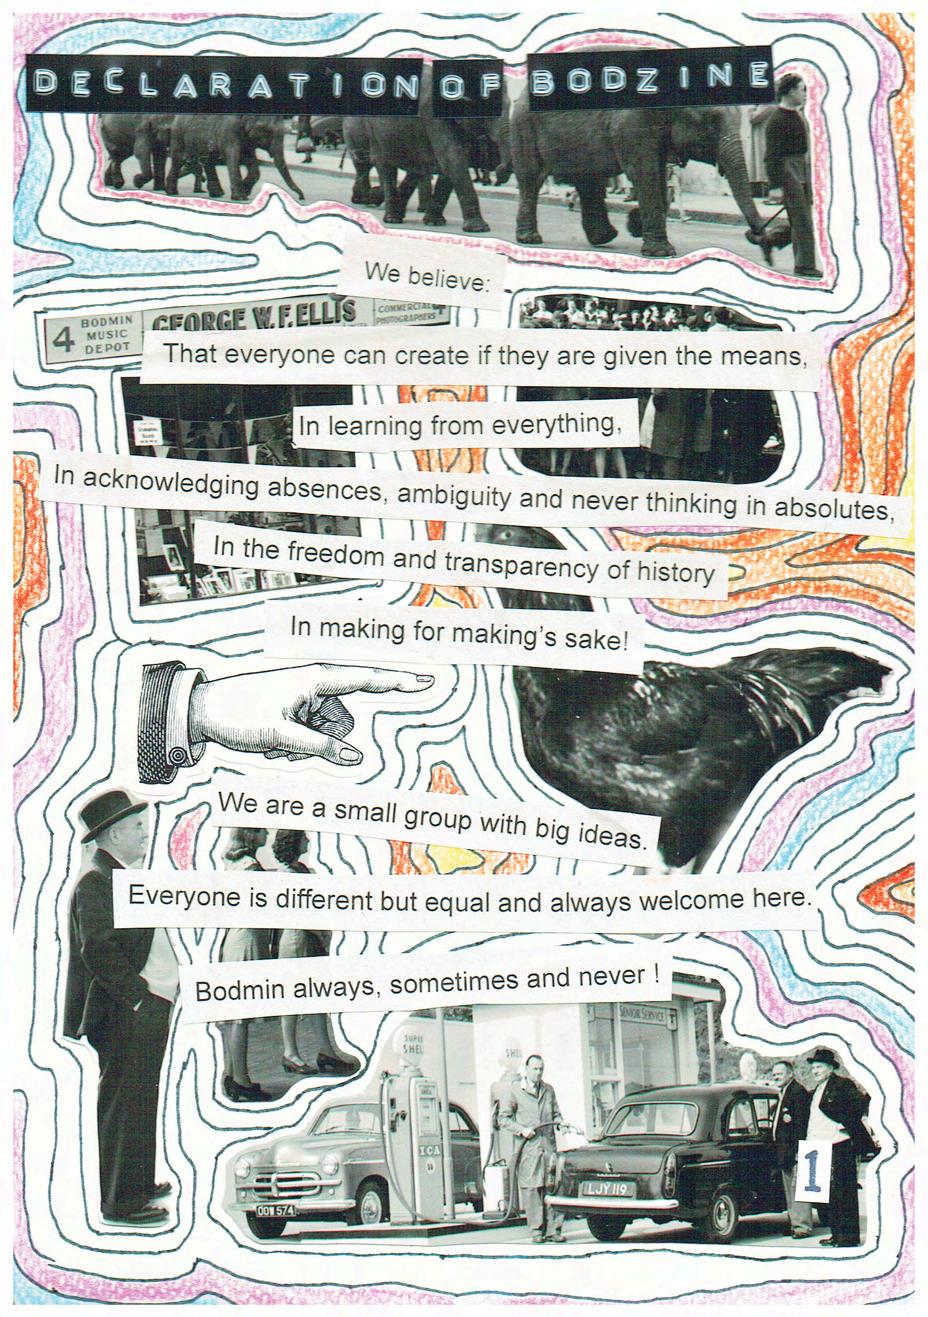 DECLARATION OF BODZINE
We believe:
4 BODMIN MUSIC DEPOT
GEORGE W.F. ELLIS
COMMERCIAL PHOTOGRAPHERS
That everyone can create if they are given the means,
In learning from everything,
In acknowledging absences, ambiguity and never thinking in absolutes,
In the freedom and transparency of history
In making for making's sake!
We are a small group with big ideas.
Everyone is different but equal and always welcome here.
Bodmin always, sometimes and never !
SENIOR SERVICE
SUPER
SHEL
SHEL
ICA
OOW 574
LJY 119
1